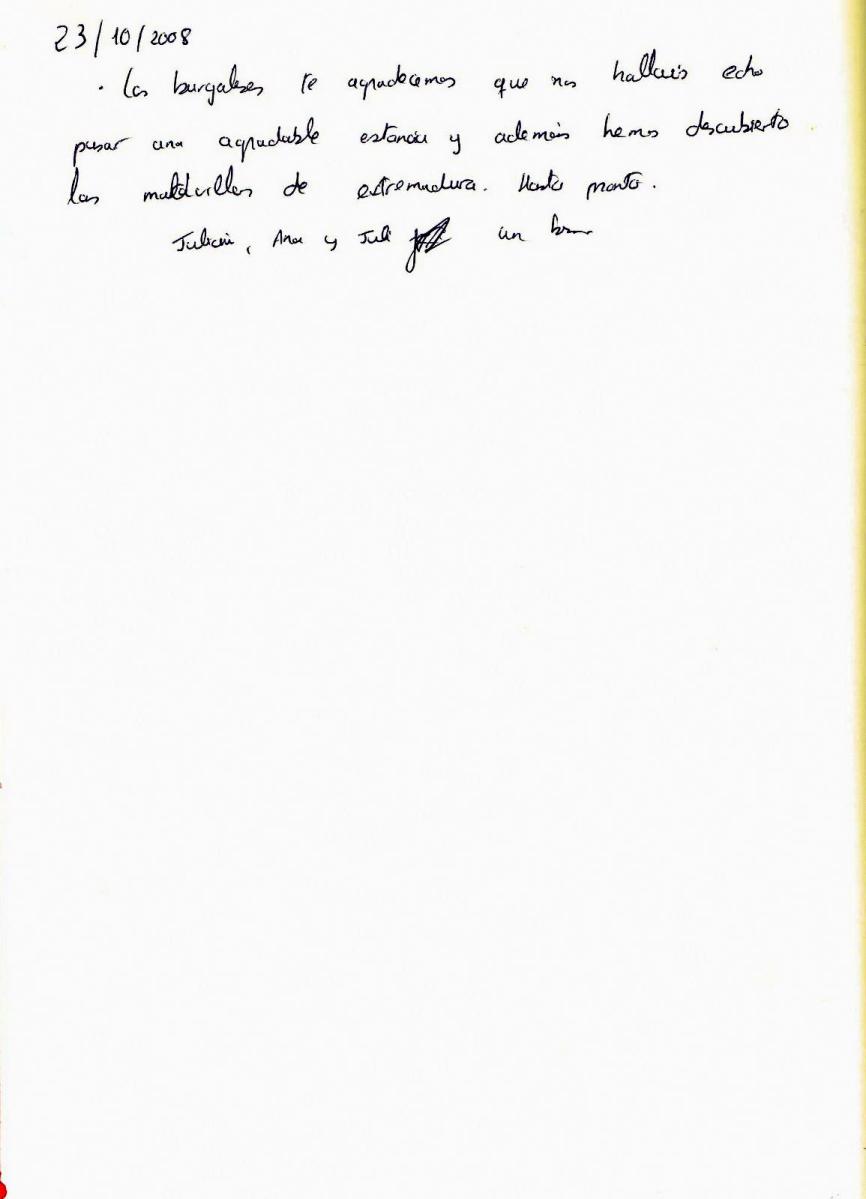 23/10/2008
· Los burgaleses te agradecemos que nos hallais echo
pasar una agradable estancia y además hemos descubierto
las de extremadura. Hasta pronto.
Julián, Ana y Juli un